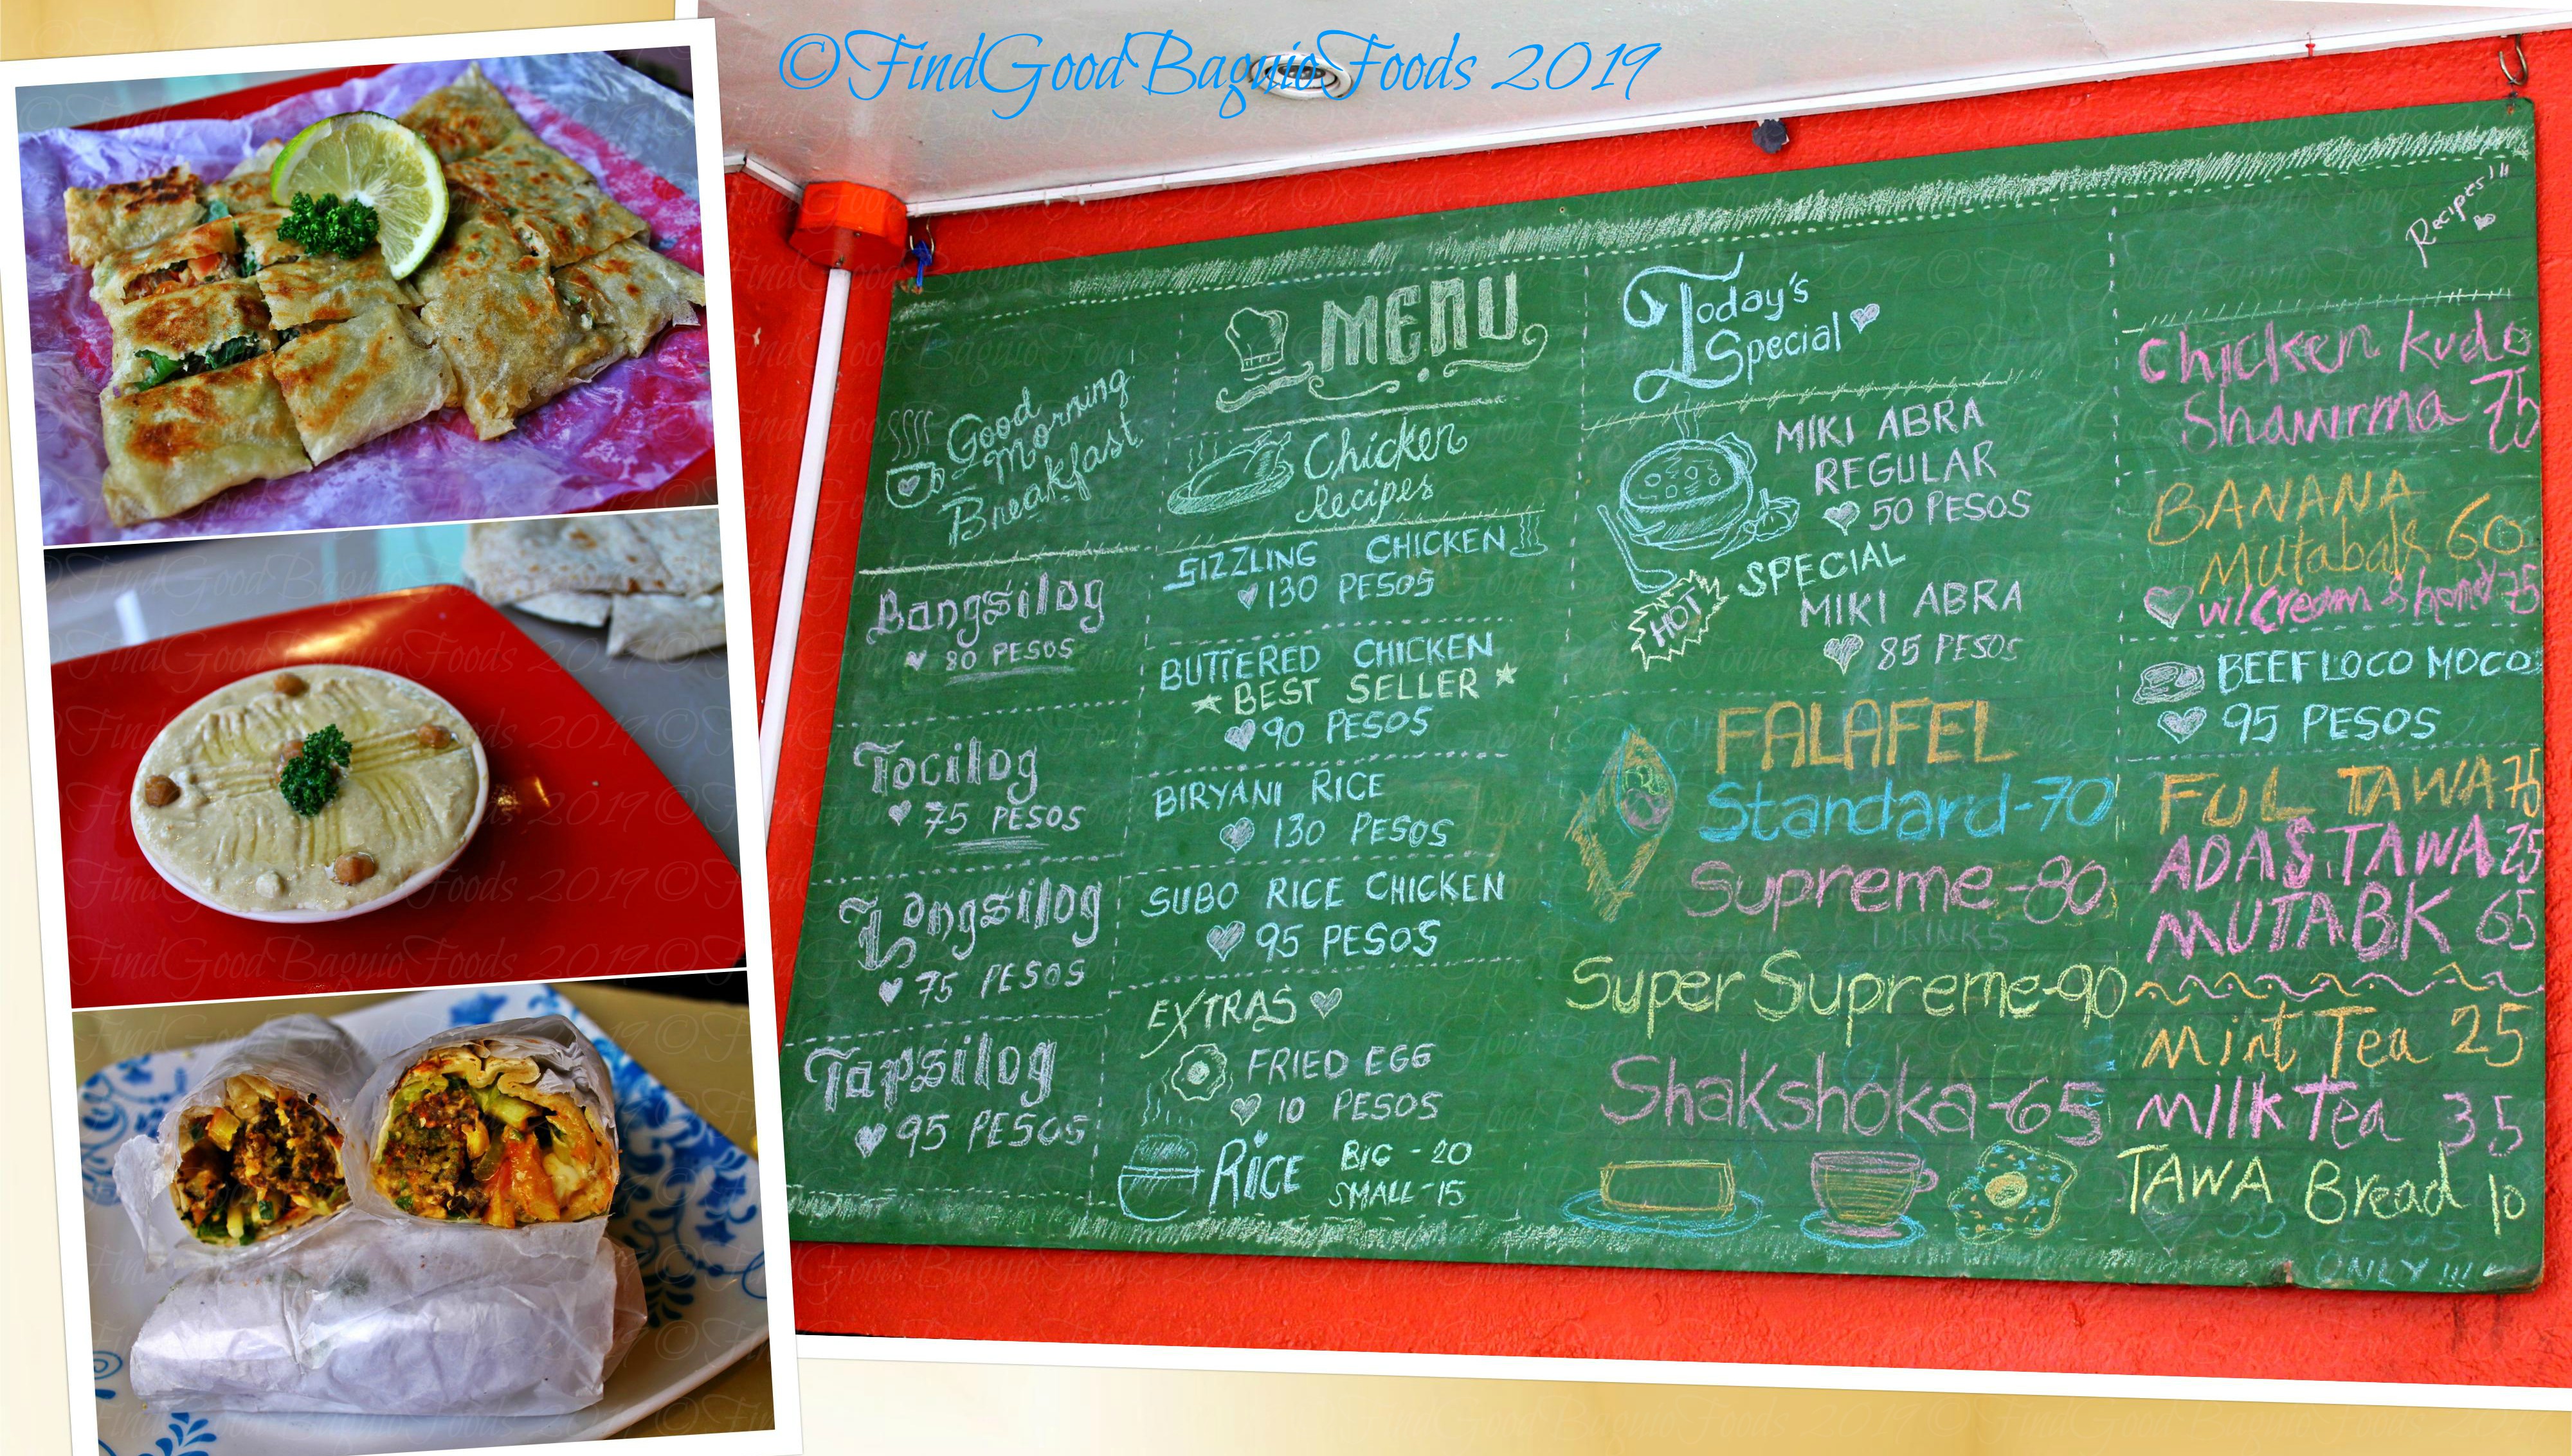 ©FindGoodBaguioFoods 2019
Recipes!!!
MENU
Good
Morning
Breakfast
Bangsilog
80 PESOS
Tocilog
75 PESOS
Longsilog
75 PESOS
Tapsilog
95 PESOS
Chicken
Recipes
SIZZLING CHICKEN
130 PESOS
BUTTERED CHICKEN
BEST SELLER
90 PESOS
BIRYANI RICE
130 PESOS
SUBO RICE CHICKEN
95 PESOS
EXTRAS
FRIED EGG
10 PESOS
RICE BIG - 20
SMALL - 15
Today's
Special
MIKI ABRA
REGULAR
50 PESOS
HOT
SPECIAL
MIKI ABRA
85 PESOS
FALAFEL
Standard-70
Supreme-80
DRINKS
Super Supreme-90
Shakshoka-65
Chicken kudo
Shawirma 75
BANANA
Mutabak 60
w/cream & honey 75
BEEF LOCO MOCO
95 PESOS
FUL TAWA 75
ADAS TAWA 75
MUTABK 65
Mint Tea 25
Milk Tea 35
TAWA Bread 10
ONLY!!!